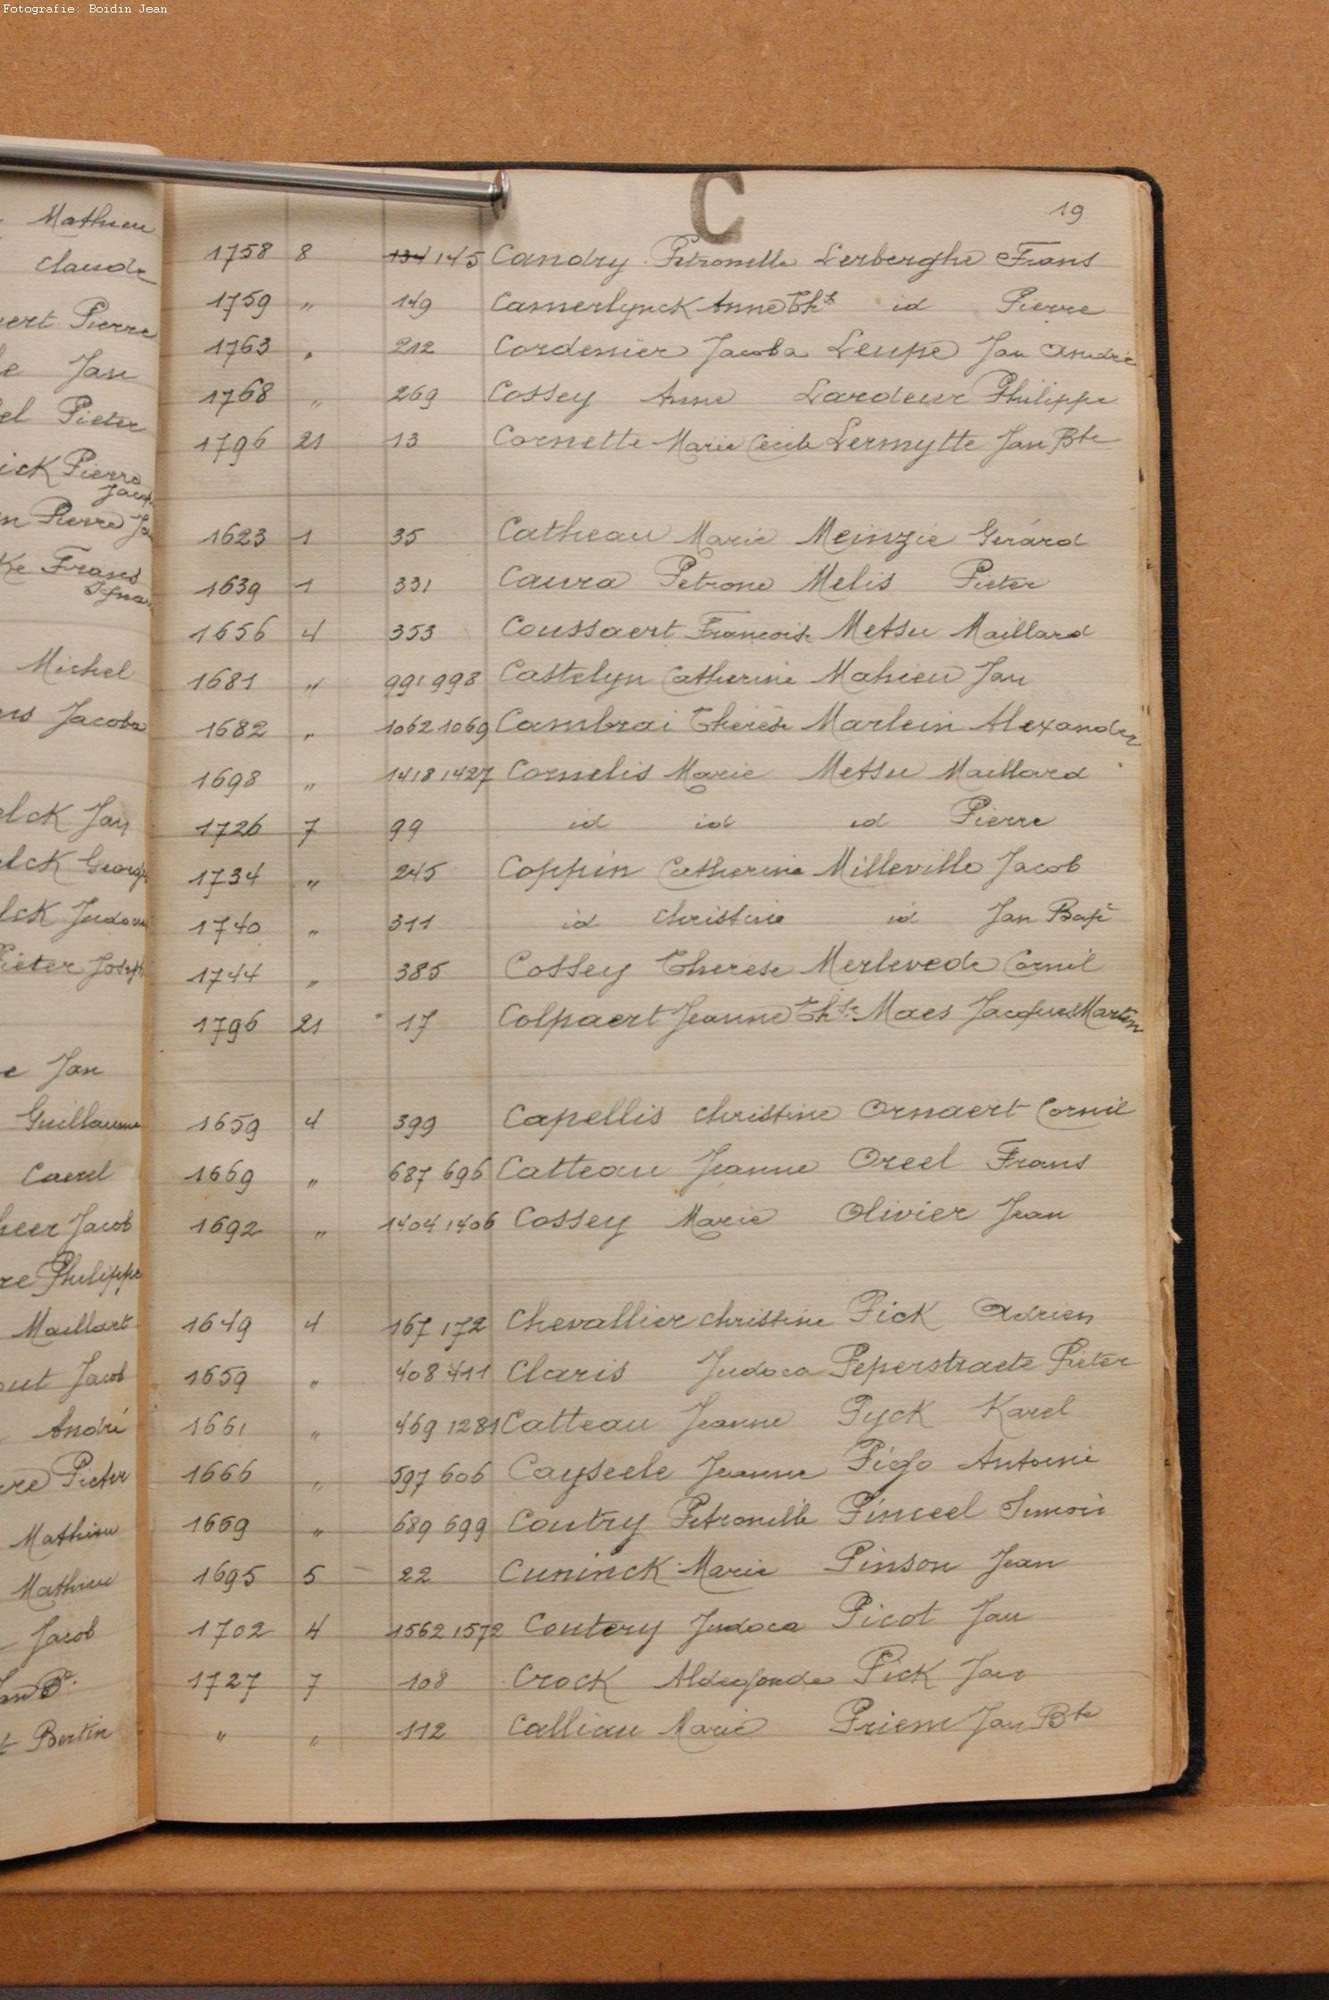 Fotografie: Boidin Jean
Mathieu
Claude
Pierre
Jan
Pieter
Pierre
Pierre
Frans
Michel
Jacoba
Jan
Jan
Guillaume
Jacob
Philippe
Maillart
Jacob
André
Pieter
Mathieu
Mathieu
Jacob
Bertin
C
19
1758 8 134 145 Candry Petronelle Lerberghe Frans
1759 „ 149 Camerlynck Anne Thse id Pierre
1763 „ 212 Cordenier Jacoba Leupe Jan André
1768 „ 269 Cossey Anne Lardeur Philippe
1796 21 13 Cornette Marie Cecile Lermytte Jan Bte
1623 1 35 Catheau Marie Meinzie Gerárd
1639 1 331 Caura Petrone Melis Pieter
1656 4 353 Coussaert Francoise Metsu Maillard
1681 „ 991 998 Castelyn Catherine Mahieu Jan
1682 „ 1062 1069 Cambrai Thérèse Marlein Alexander
1698 „ 1418 1427 Cornelis Marie Metsu Maillard
1726 7 99 id id id Pierre
1734 „ 245 Coppin Catherine Milleville Jacob
1740 „ 311 id Christine id Jan Bapt
1744 „ 385 Cossey Therese Merlevede Cornil
1796 21 17 Colpaert Jeanne Thse Maes Jacques Martin
1659 4 399 Capellis Christine Ornaert Cornil
1669 „ 687 696 Catteau Jeanne Oreel Frans
1692 „ 1404 1406 Cossey Marie Olivier Jean
1649 4 167 172 Chevallier Christine Pick Adrien
1659 „ 408 411 Claris Judoca Peperstraete Pieter
1661 „ 469 1281 Catteau Jeanne Pyck Karel
1666 „ 597 606 Cayseele Jeanne Pigo Antoine
1669 „ 689 699 Coutry Petronille Pinceel Simoen
1695 5 22 Cuninck Marie Pinson Jean
1702 4 1562 1572 Coutery Judoca Picot Jan
1727 7 108 Crock Aldegonde Pick Jan
„ „ 112 Calliau Marie Priem Jan Bte